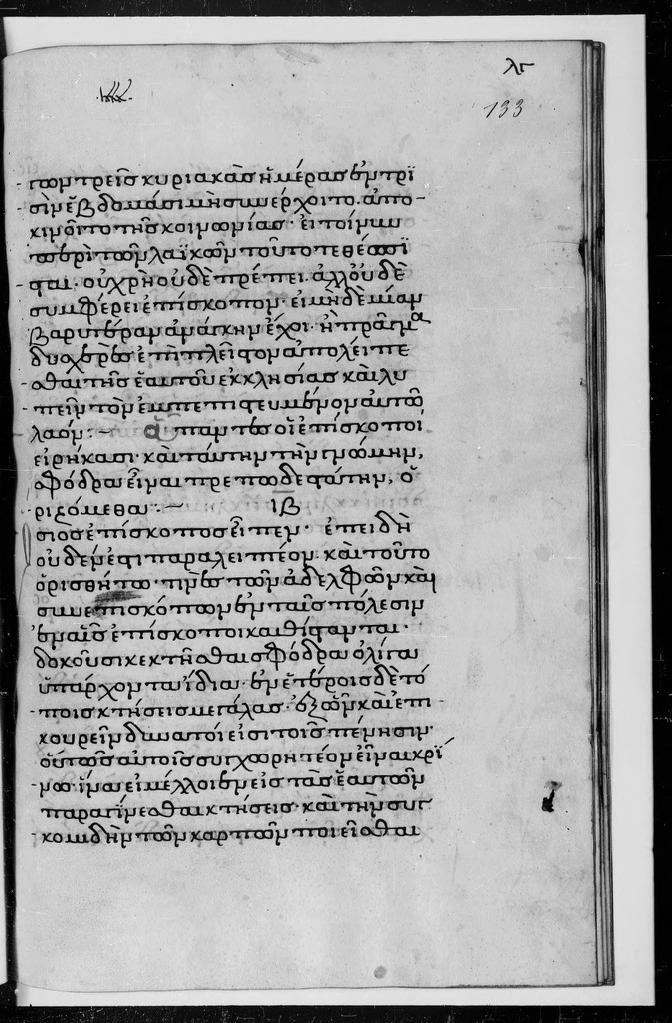 λγ
133
των τρεῖς κυριακὰς ἡμέρας ἐν τρϊ
σὶν ἑβδομάσι μὴ συνέρχοιτο. ἀπο
κινοῖτο τῆς κοινωνίας· εἰ τοίνυν
περὶ τῶν λαϊκῶν τοῦτο τεθέσπϊ
σται. οὐ χρὴ οὐδὲ πρέπει. ἀλλ' οὐδὲ
συμφέρει ἐπίσκοπον· εἰ μηδεμίαν
βαρυτέραν ἀνάγκην ἔχοι· ἢ πρᾶγμα
δυσχερὲς ἐπὶ πλεῖστον ἀπολείπε
σθαι τῆς ἑαυτοῦ ἐκκλησίας καὶ λυ
πεῖν τὸν ἐμπεπιστευμένον αὐτῶ
λαόν:— ἅπαντες οἱ ἐπίσκοποι
εἰρήκασι· καὶ ταύτην τὴν γνώμην,
σφόδρα εἶναι πρεπωδεστάτην, ὁ
ριζόμεθα:— ιβ
σιος ἐπίσκοπος εἶπεν· ἐπειδὴ
οὐδέν ἐστι παραλειπτέον. καὶ τοῦτο
ὁρισθήτω· τινὲς τῶν ἀδελφῶν καὶ
συνεπισκόπων ἐν ταῖς πόλεσιν
ἐν αἷς ἐπίσκοποι καθίστανται·
δοκοῦσι κεκτῆσθαι σφόδρα ὀλίγα
ὑπάρχοντα ἴδια· ἐν ἑτέροις δὲ τό
ποις κτήσεις μεγάλας· ἐξ ὧν καὶ ἐπι
κουρεῖν δυνατοί εἰσι τοῖς πένησιν·
οὕτως αὐτοῖς συγχωρητέον εἶναι κρί
νω· ἵνα εἰ μέλλοιεν εἰς τὰς ἑαυτῶν
παραγίνεσθαι κτήσεις· καὶ τὴν συγ
κομιδὴν τῶν καρπῶν ποιεῖσθαι